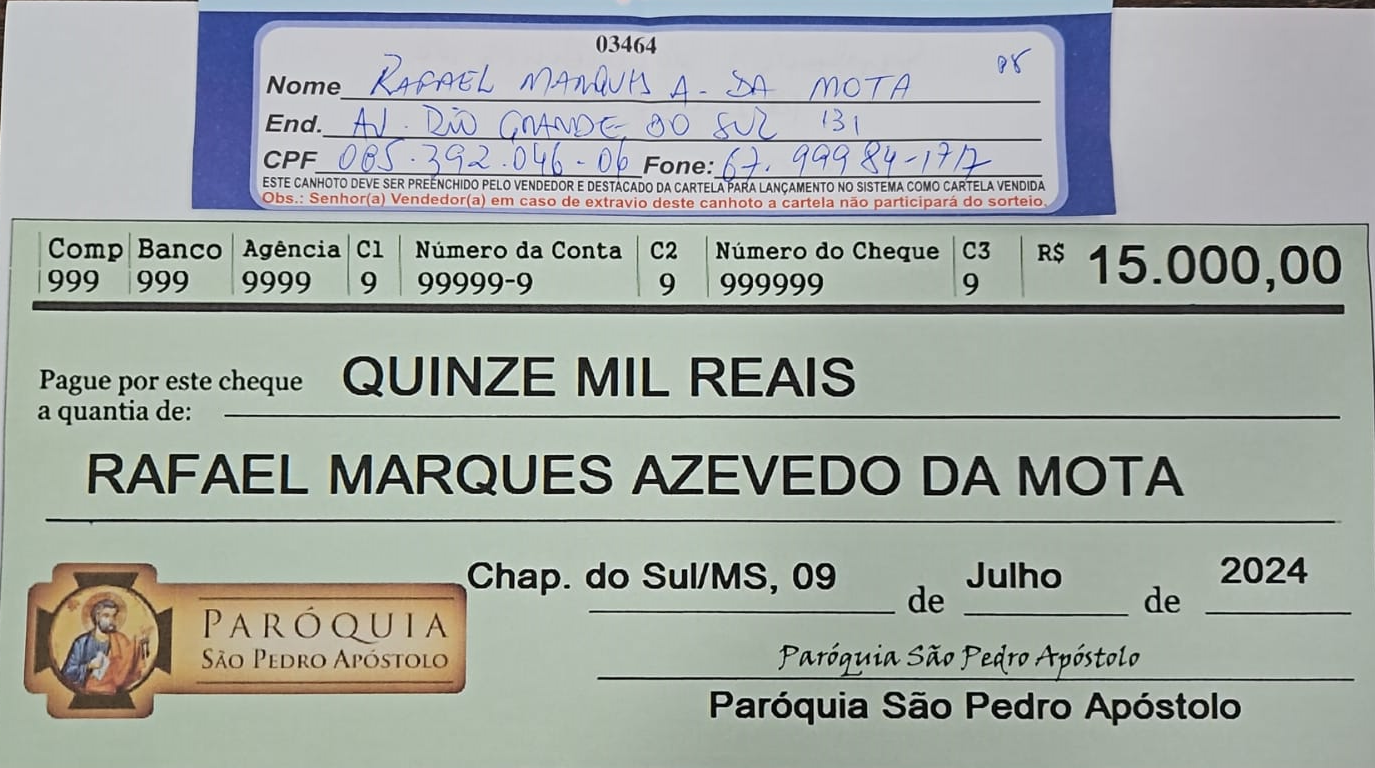 03464
08
Nome RAFAEL MARQUES A. DA MOTA
End. AV. RIO GRANDE DO SUL 131
CPF 085.392.046-06 Fone: 67. 99984-1717
ESTE CANHOTO DEVE SER PREENCHIDO PELO VENDEDOR E DESTACADO DA CARTELA PARA LANÇAMENTO NO SISTEMA COMO CARTELA VENDIDA
Obs.: Senhor(a) Vendedor(a) em caso de extravio deste canhoto a cartela não participará do sorteio.
Comp Banco Agência C1 Número da Conta C2 Número do Cheque C3 R$ 15.000,00
999 999 9999 9 99999-9 9 999999 9
Pague por este cheque QUINZE MIL REAIS
a quantia de:
RAFAEL MARQUES AZEVEDO DA MOTA
Chap. do Sul/MS, 09 de Julho de 2024
PARÓQUIA
SÃO PEDRO APÓSTOLO
Paróquia São Pedro Apóstolo
Paróquia São Pedro Apóstolo